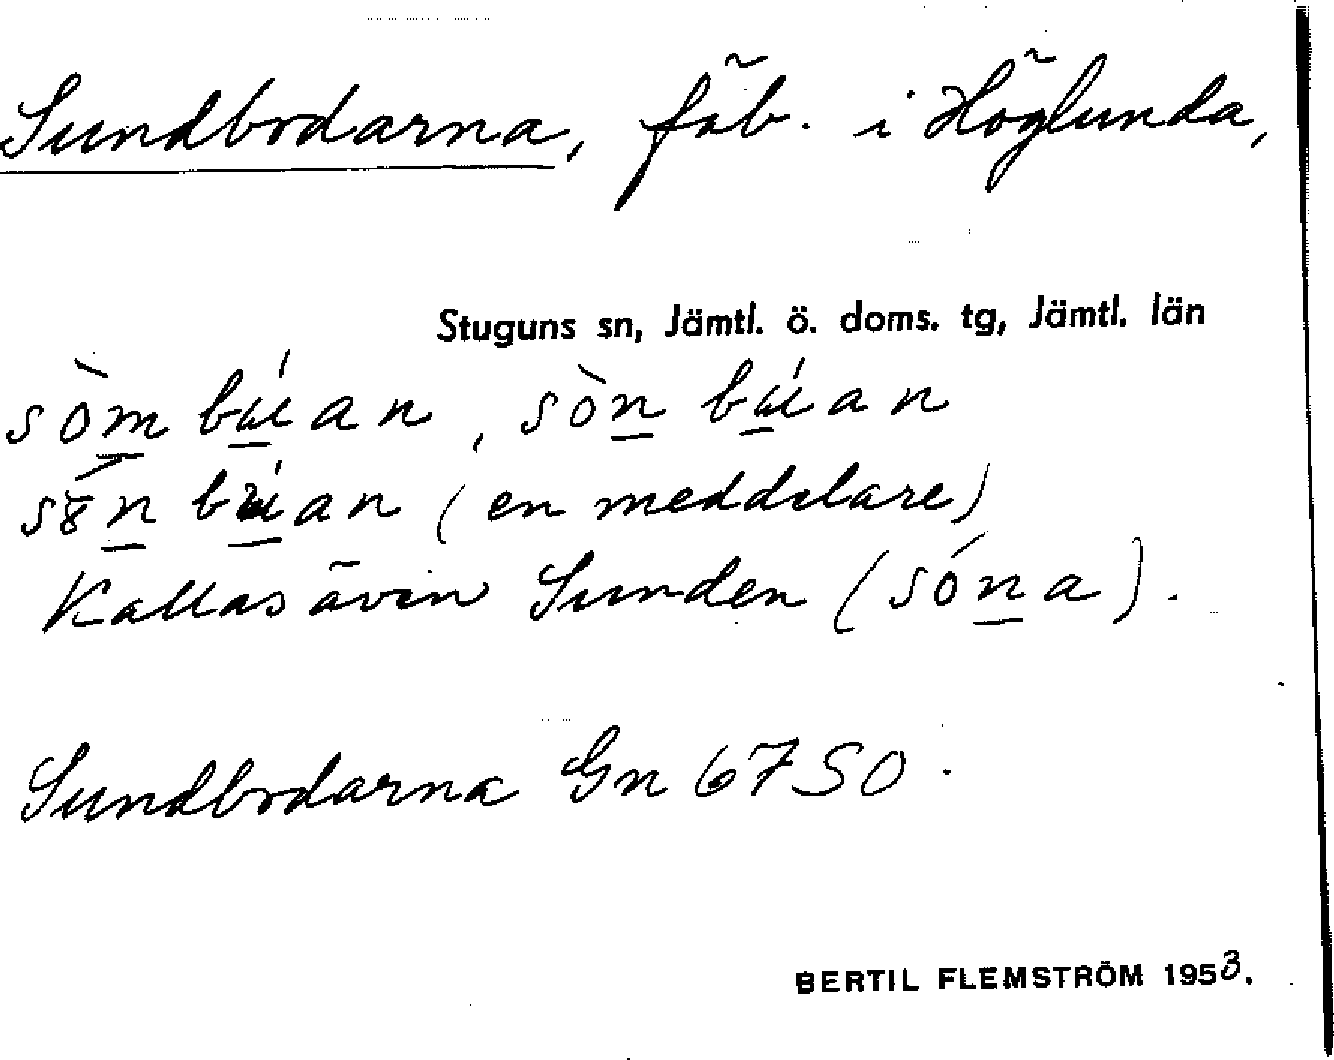 Sundbodarna, fäb. i Höglunda,
Stuguns sn, Jämtl. ö. doms. tg, Jämtl. län
sòm búan, sòn búan
búan (en meddelare)
Kallas även Sunden (sóna).
Sundbodarna Gn 6750.
BERTIL FLEMSTRÖM 1953.